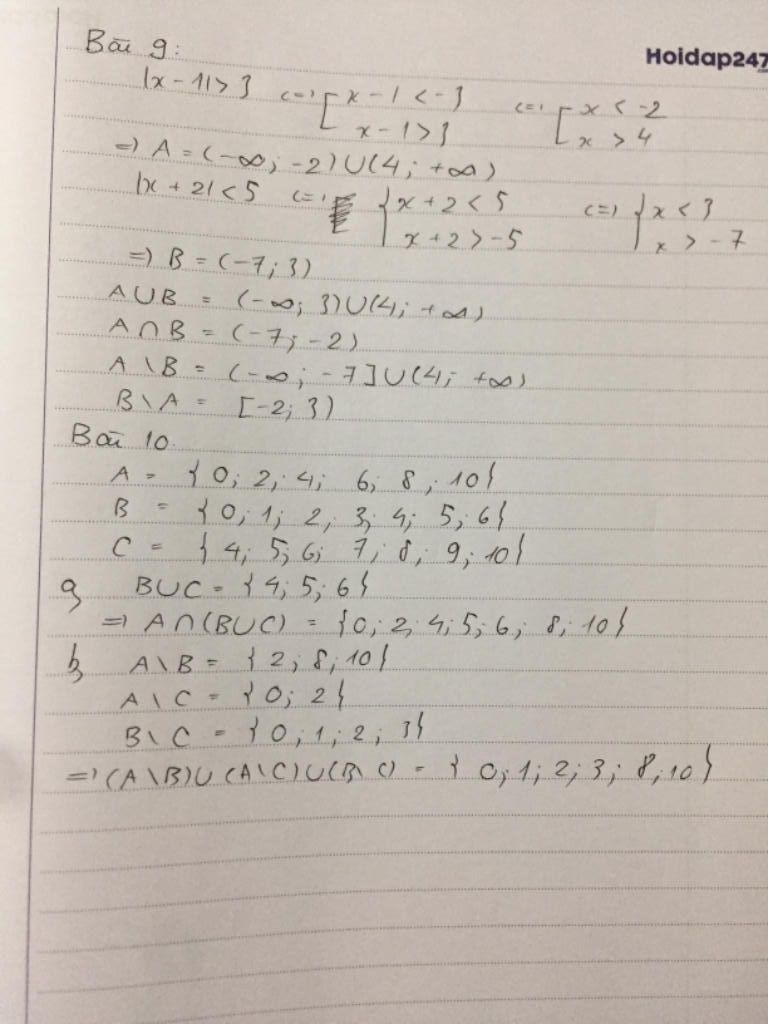 Bài 9:
Hoidap247
|x - 1| > 3 <=> [ x - 1 < -3 <=> [ x < -2
x - 1 > 3 x > 4
=> A = (-∞; -2) ∪ (4; +∞)
|x + 2| < 5 <=> { x + 2 < 5 <=> { x < 3
x + 2 > -5 x > -7
=> B = (-7; 3)
A ∪ B = (-∞; 3) ∪ (4; +∞)
A ∩ B = (-7; -2)
A \ B = (-∞; -7] ∪ (4; +∞)
B \ A = [-2; 3)
Bài 10.
A = { 0; 2; 4; 6; 8; 10 }
B = { 0; 1; 2; 3; 4; 5; 6 }
C = { 4; 5; 6; 7; 8; 9; 10 }
a, B ∪ C = { 4; 5; 6 }
=> A ∩ (B ∪ C) = { 0; 2; 4; 5; 6; 8; 10 }
b, A \ B = { 2; 8; 10 }
A \ C = { 0; 2 }
B \ C = { 0; 1; 2; 3 }
=> (A \ B) ∪ (A \ C) ∪ (B \ C) = { 0; 1; 2; 3; 8; 10 }